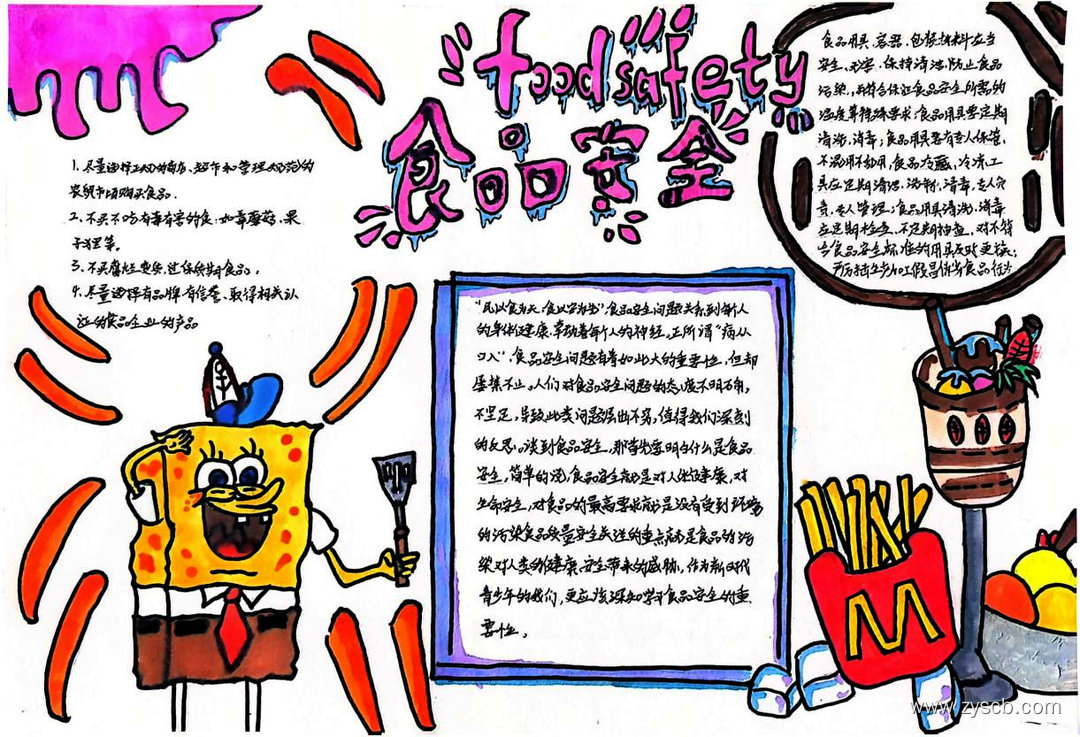 food safety
食品安全
1、尽量选择正规的商店、超市和管理规范的
农贸市场购买食品.
2、不买不吃有毒有害的食,如毒蘑菇,果
子狸等。
3、不买腐烂变质、过保质期食品。
4、尽量选择有品牌、有信誉、取得相关认
证的食品企业的产品
食品用具、容器、包装材料应当
安全、无害,保持清洁,防止食品
污染,并符合保证食品安全所需的
温度等特殊要求;食品用具要定期
清洗,消毒;食品用具要有专人保管、
不混用不乱用,食品冷藏、冷冻工
具应定期清洁、洗刷、消毒,专人负
责、专人管理;食品用具清洗、消毒
应定期检查、不定期抽查,对不符
合食品安全标准的用具及时更换;
严厉打击加工假冒伪劣食品行为
"民以食为天,食以安为先",食品安全问题关系到每个人
的身体健康,牵动着每个人的神经。正所谓"病从
口入",食品安全问题有着如此大的重要性,但却
屡禁不止。人们对食品安全问题的态度不明不确,
不坚定,导致此类问题层出不穷,值得我们深刻
的反思。谈到食品安全,那首先要明白什么是食品
安全,简单的说,食品安全就是对人体健康,对
生命安全,对食品的最高要求就是没有受到环境
的污染食品质量安全关注的重点就是食品的污
染对人类的健康、安全带来的威胁,作为新时代
青少年的我们,更应该深知学习食品安全的重
要性。
www.zyscb.com